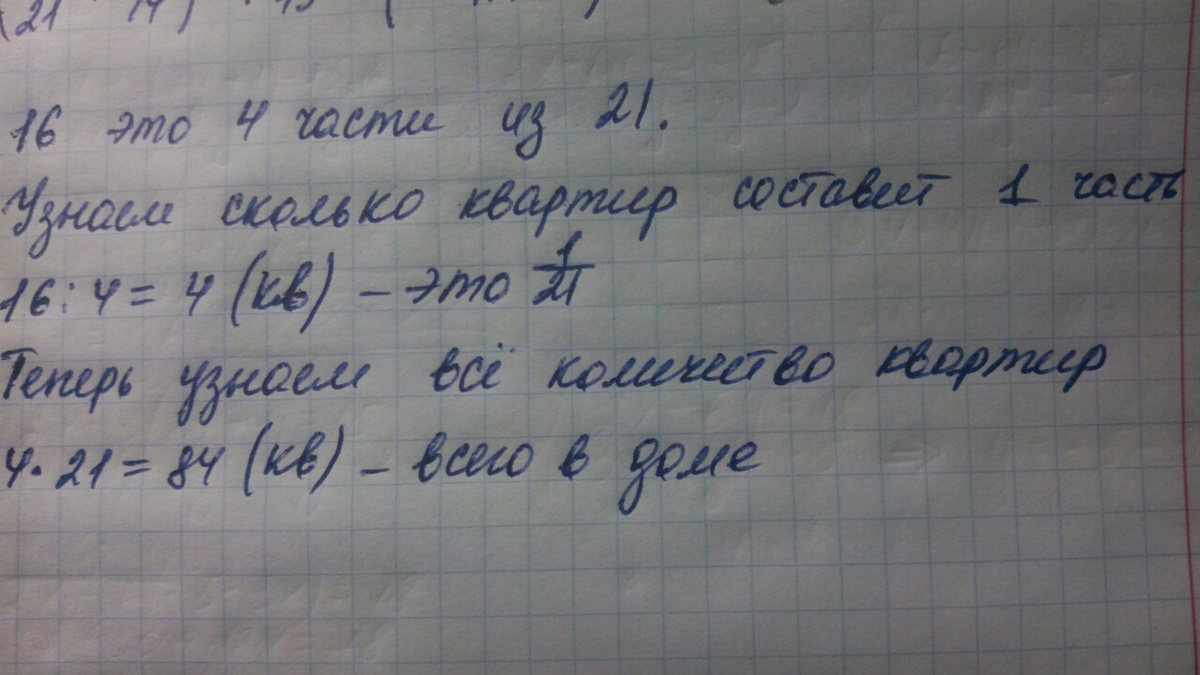 16 это 4 части из 21.
Узнаем сколько квартир составит 1 часть
16:4=4 (кв) – это 1/21
Теперь узнаем всё количество квартир
4·21=84 (кв) – всего в доме